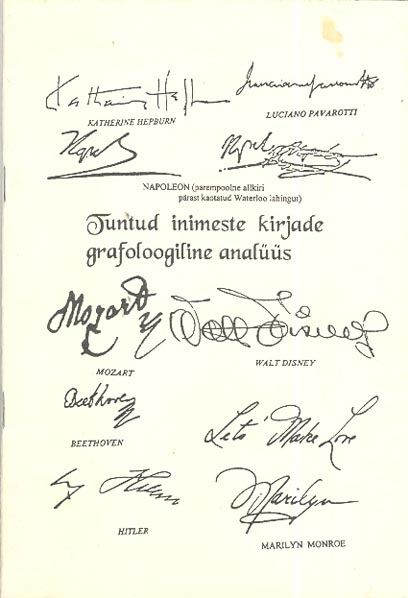 Katharine Hep
KATHERINE HEPBURN
LUCIANO PAVAROTTI
NAPOLEON (parempoolne allkiri
pärast kaotatud Waterloo lahingut)
Tuntud inimeste kirjade
grafoloogiline analüüs
Mozart
MOZART
Walt Disney
WALT DISNEY
Beethoven
BEETHOVEN
Lets' Make Love
HITLER
Marilyn
MARILYN MONROE